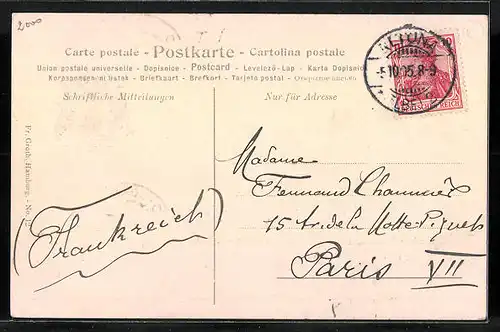 2000
Carte postale - Postkarte - Cartolina postale
Union postale universelle - Dopisnice - Postcard - Levelező-Lap - Karta Dopisowa
Korespondenční lístek - Briefkaart - Brefkort - Tarjeta postal -
Schriftliche Mitteilungen
Nur für Adresse
ALTONA
5.10.05.8-9
REICH
Madame
Fernand
15 Av. de la Motte-Piquet
Paris VII
(Frankreich)
Fr. Groth, Hamburg. - No.